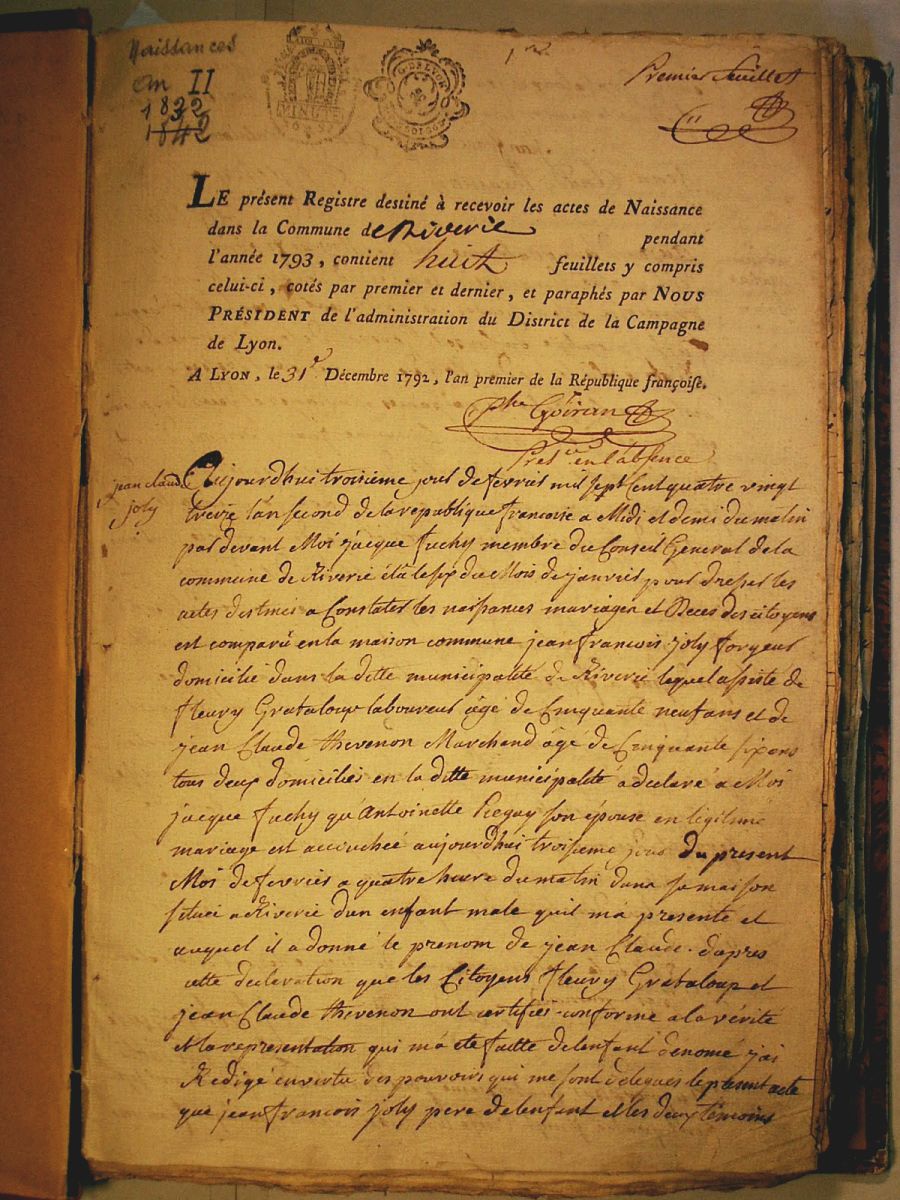 Naissances
an II
1832
1842
VINGT
G. DE LYON
Premier feuillet
LE présent Registre destiné à recevoir les actes de Naissance
dans la Commune de Riverie pendant
l'année 1793, contient huit feuillets y compris
celui-ci, cotés par premier et dernier, et paraphés par NOUS
PRÉSIDENT de l'administration du District de la Campagne
de Lyon.
A LYON, le 31e Décembre 1792, l'an premier de la République françoise.
Goiran
en l'absence
jean claude
joly
Aujourdhui troisieme jour de fevrier mil sept Cent quatre vingt
treize lan second de la republique francoise a Midi et demi du matin
par devant Moi jacque fuchy membre du Conseil General de la
commune de Riverie élû le six du Mois de janvier pour dresser les
actes destinés a Constater les naissances mariages et Deces des citoyens
est comparû en la maison commune jean francois joly forgeur
domicilié dans la ditte municipalité de Riverie lequel assisté de
fleury Grataloup laboureur âgé de Cinquante neuf ans et de
jean Claude thevenon Marchand âgé de Cinquante six ans
tous deux domiciliés en la ditte municipalité a declaré a Moi
jacque fuchy qu'Antoinette son épouse en légitime
mariage est accouchée aujourdhui troisieme jour du present
Moi de fevrier a quatre heure du matin dans sa maison
situeé a Riverie dun enfant male quil ma presenté et
auquel il a donné le prenom de jean Claude. dapres
cette declaration que les Citoyens fleury Grataloup et
jean Claude thevenon ont certifiés conforme a la vérité
et la representation qui ma eté faitte de lenfant denomé jai
Redigé en vertu des pouvoirs qui me sont delegués le present acte
que jean francois joly pere de lenfant et les deux temoins